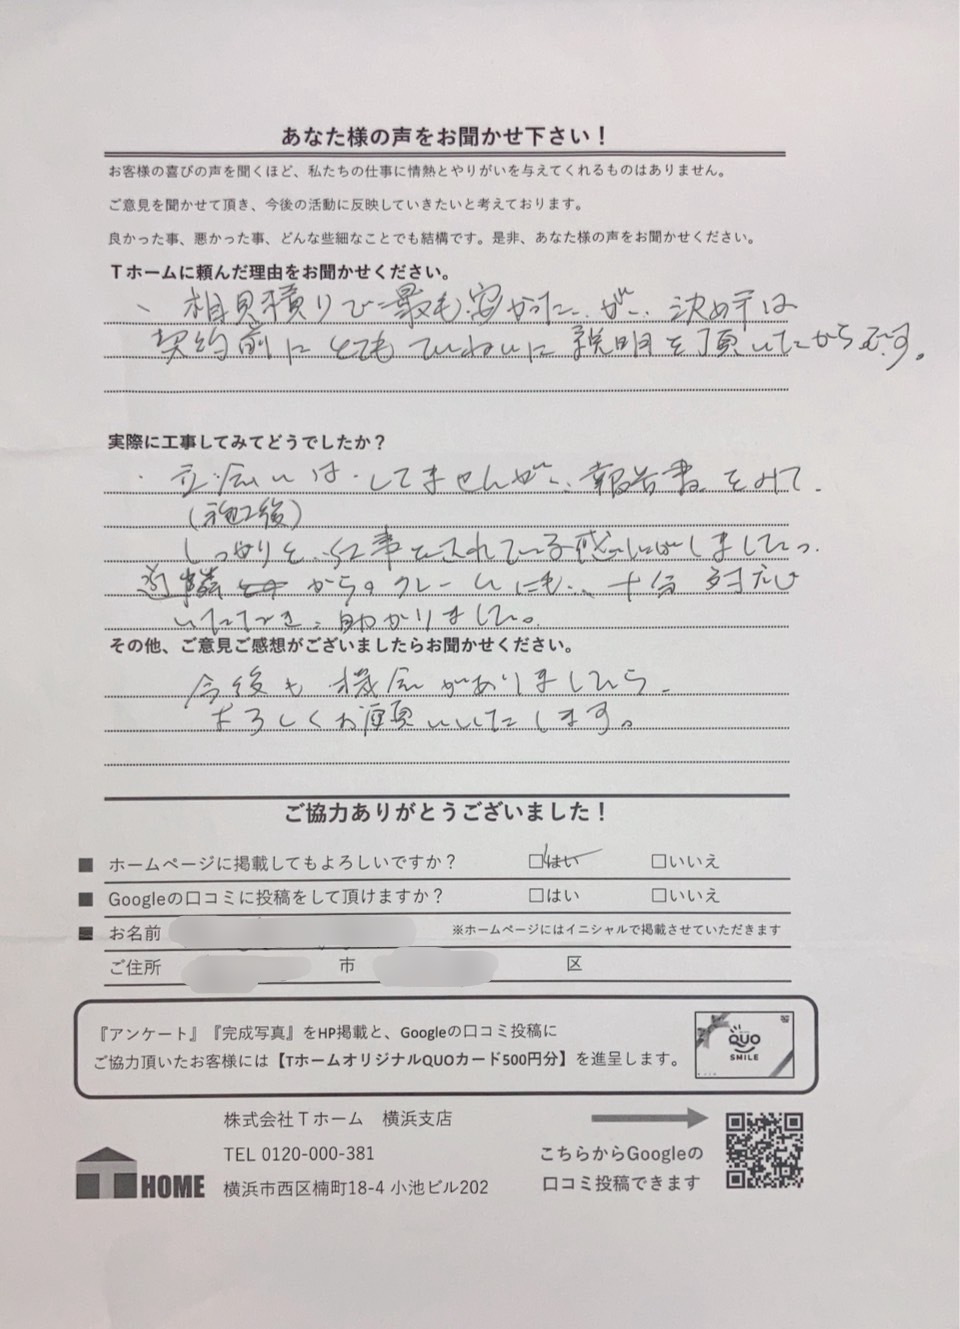 あなた様の声をお聞かせ下さい！
お客様の喜びの声を聞くほど、私たちの仕事に情熱とやりがいを与えてくれるものはありません。
ご意見を聞かせて頂き、今後の活動に反映していきたいと考えております。
良かった事、悪かった事、どんな些細なことでも結構です。是非、あなた様の声をお聞かせください。
Ｔホームに頼んだ理由をお聞かせください。
、相見積りで最も安かったが、決め手は
契約前にとてもていねいに説明を頂いたからです。
実際に工事してみてどうでしたか？
・立会いはしてませんが、報告書をみて、
（施工後）
しっかりと、工事をされている感じがしました。
近隣からのクレームにも、十分対応
いただき、助かりました。
その他、ご意見ご感想がございましたらお聞かせください。
今後も機会がありましたら、
よろしくお願いいたします。
ご協力ありがとうございました！
■ ホームページに掲載してもよろしいですか？ □はい □いいえ
■ Googleの口コミに投稿をして頂けますか？ □はい □いいえ
■ お名前 ※ホームページにはイニシャルで掲載させていただきます
ご住所 市 区
『アンケート』『完成写真』をHP掲載と、Googleの口コミ投稿に
ご協力頂いたお客様には【TホームオリジナルQUOカード500円分】を進呈します。
QUO
SMILE
株式会社Ｔホーム　横浜支店
TEL 0120-000-381
横浜市西区楠町18-4 小池ビル202
T HOME
こちらからGoogleの
口コミ投稿できます